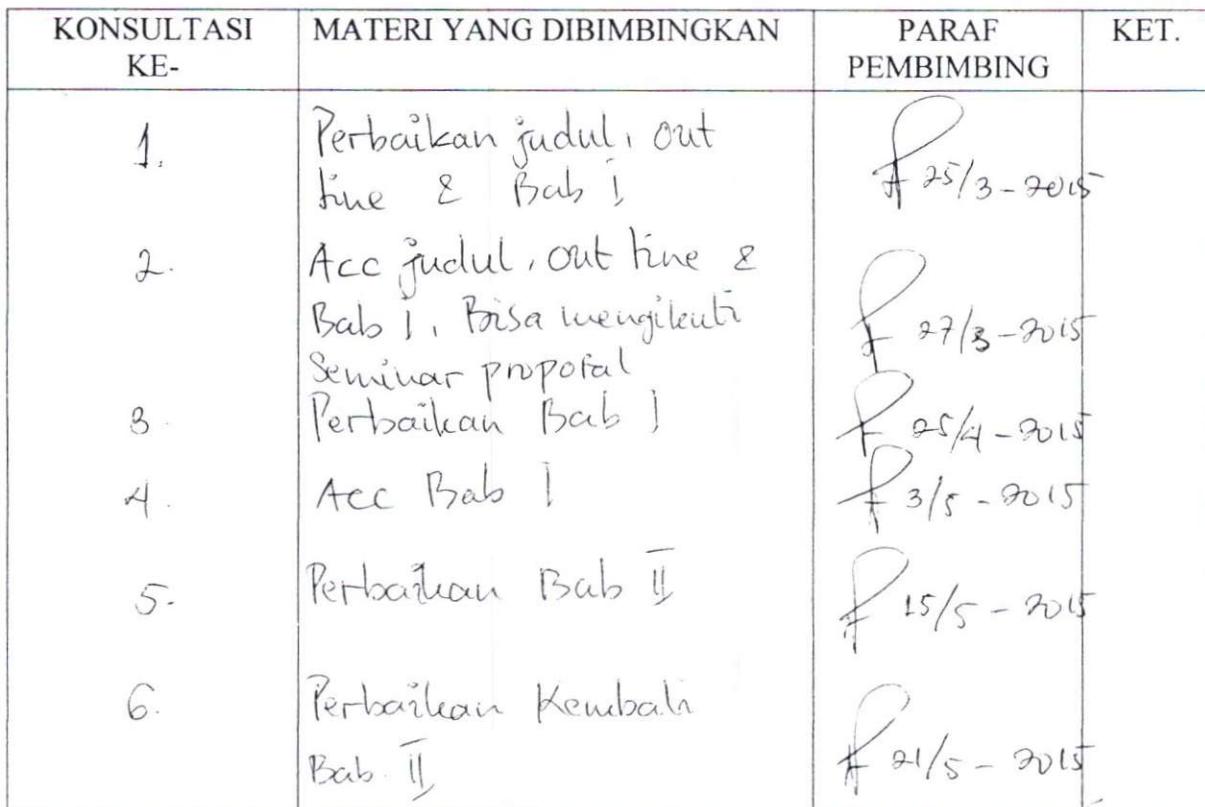 KONSULTASI KE- MATERI YANG DIBIMBINGKAN PARAF PEMBIMBING KET.
1. Perbaikan judul, out
line & Bab I 25/3-2015
2. Acc judul, out line &
Bab I, Bisa mengikuti 27/3-2015
Seminar proposal
3. Perbaikan Bab I 25/4-2015
4. Acc Bab I 3/5-2015
5. Perbaikan Bab II 15/5-2015
6. Perbaikan Kembali
Bab II 21/5-2015